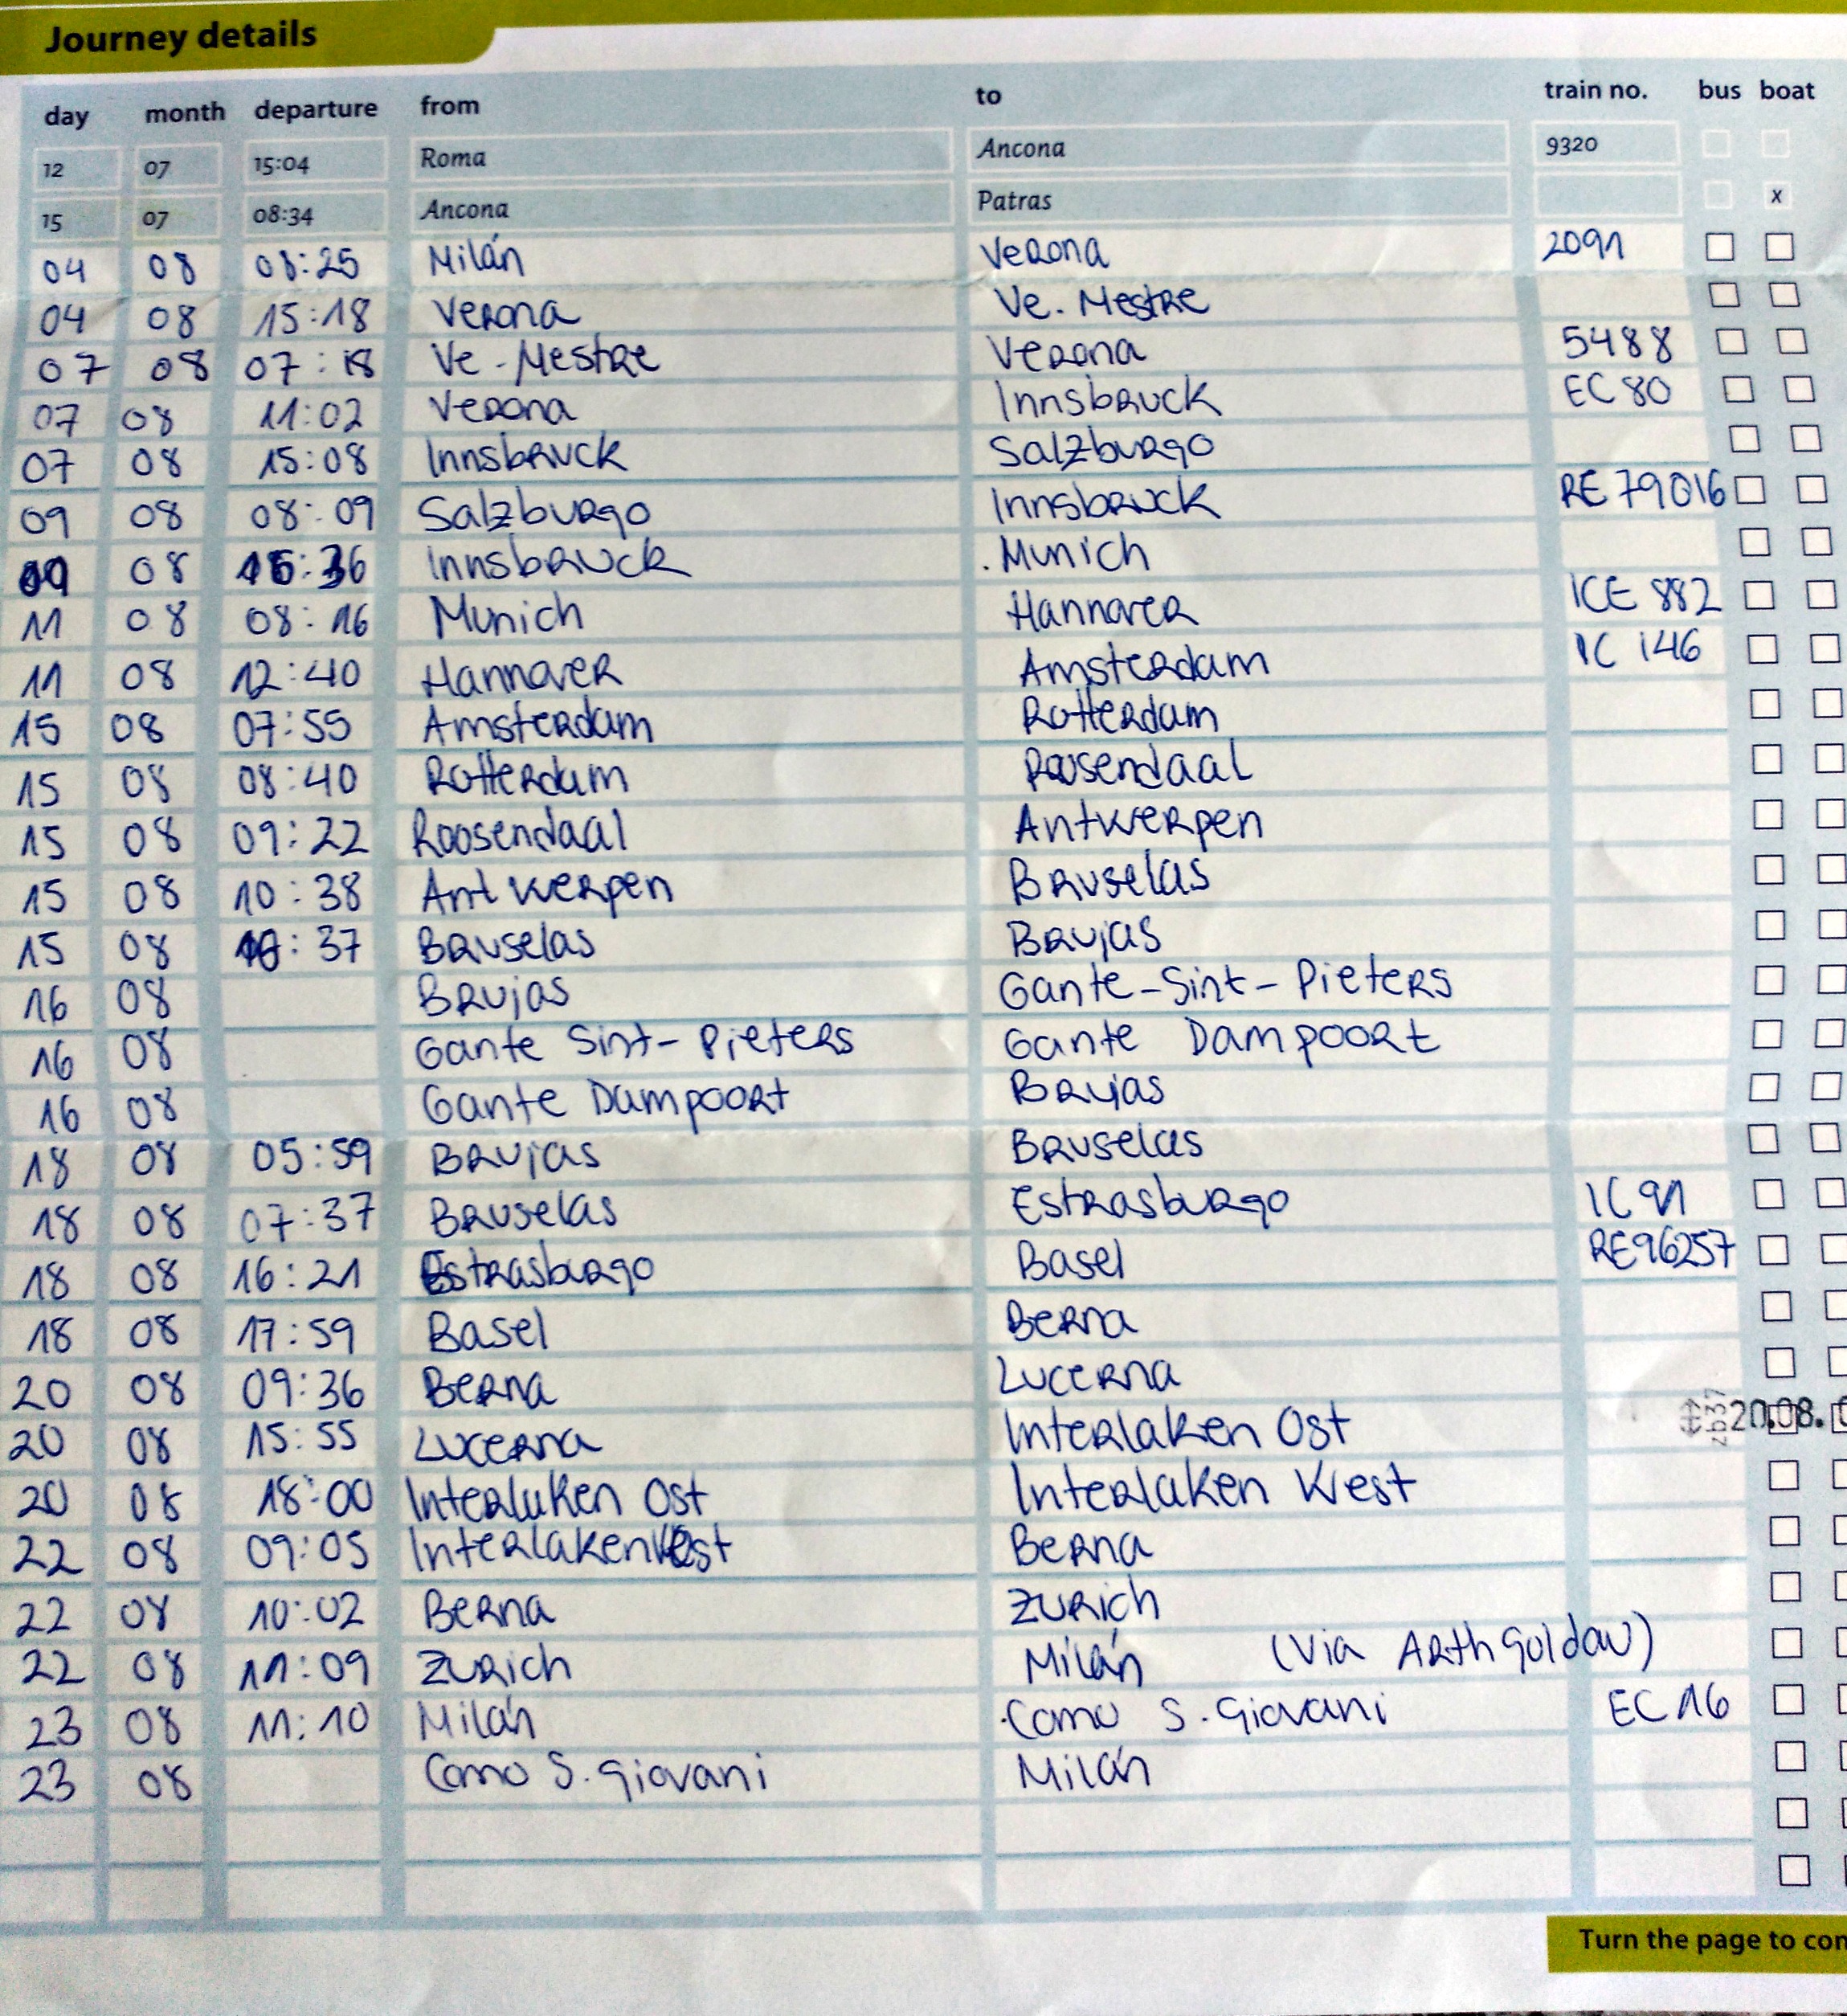 Journey details
day month departure from to train no. bus boat
12 07 15:04 Roma Ancona 9320
15 07 08:34 Ancona Patras x
04 08 08:25 Milán Verona 2091
04 08 15:18 Verona Ve. Mestre
07 08 07:18 Ve-Mestre Verona 5488
07 08 11:02 Verona Innsbruck EC 80
07 08 15:08 Innsbruck Salzburgo
09 08 08:09 Salzburgo Innsbruck RE 79016
09 08 Innsbruck Munich
11 08 08:16 Munich Hannover ICE 882
11 08 12:40 Hannover Amsterdam IC 146
15 08 07:55 Amsterdam Rotterdam
15 08 08:40 Rotterdam Roosendaal
15 08 09:22 Roosendaal Antwerpen
15 08 10:38 Antwerpen Bruselas
15 08 Bruselas Brujas
16 08 Brujas Gante-Sint-Pieters
16 08 Gante Sint-Pieters Gante Dampoort
16 08 Gante Dampoort Brujas
18 08 05:59 Brujas Bruselas
18 08 07:37 Bruselas Estrasburgo IC 91
18 08 16:21 Estrasburgo Basel RE96257
18 08 17:59 Basel Berna
20 08 09:36 Berna Lucerna
20 08 15:55 Lucerna Interlaken Ost zb37 20.08.
20 08 18:00 Interlaken Ost Interlaken West
22 08 09:05 Interlaken West Berna
22 08 10:02 Berna Zurich
22 08 11:09 Zurich Milán (Via Arth Goldau)
23 08 11:10 Milán Como S. Giovani EC 16
23 08 Como S. Giovani Milán
Turn the page to con